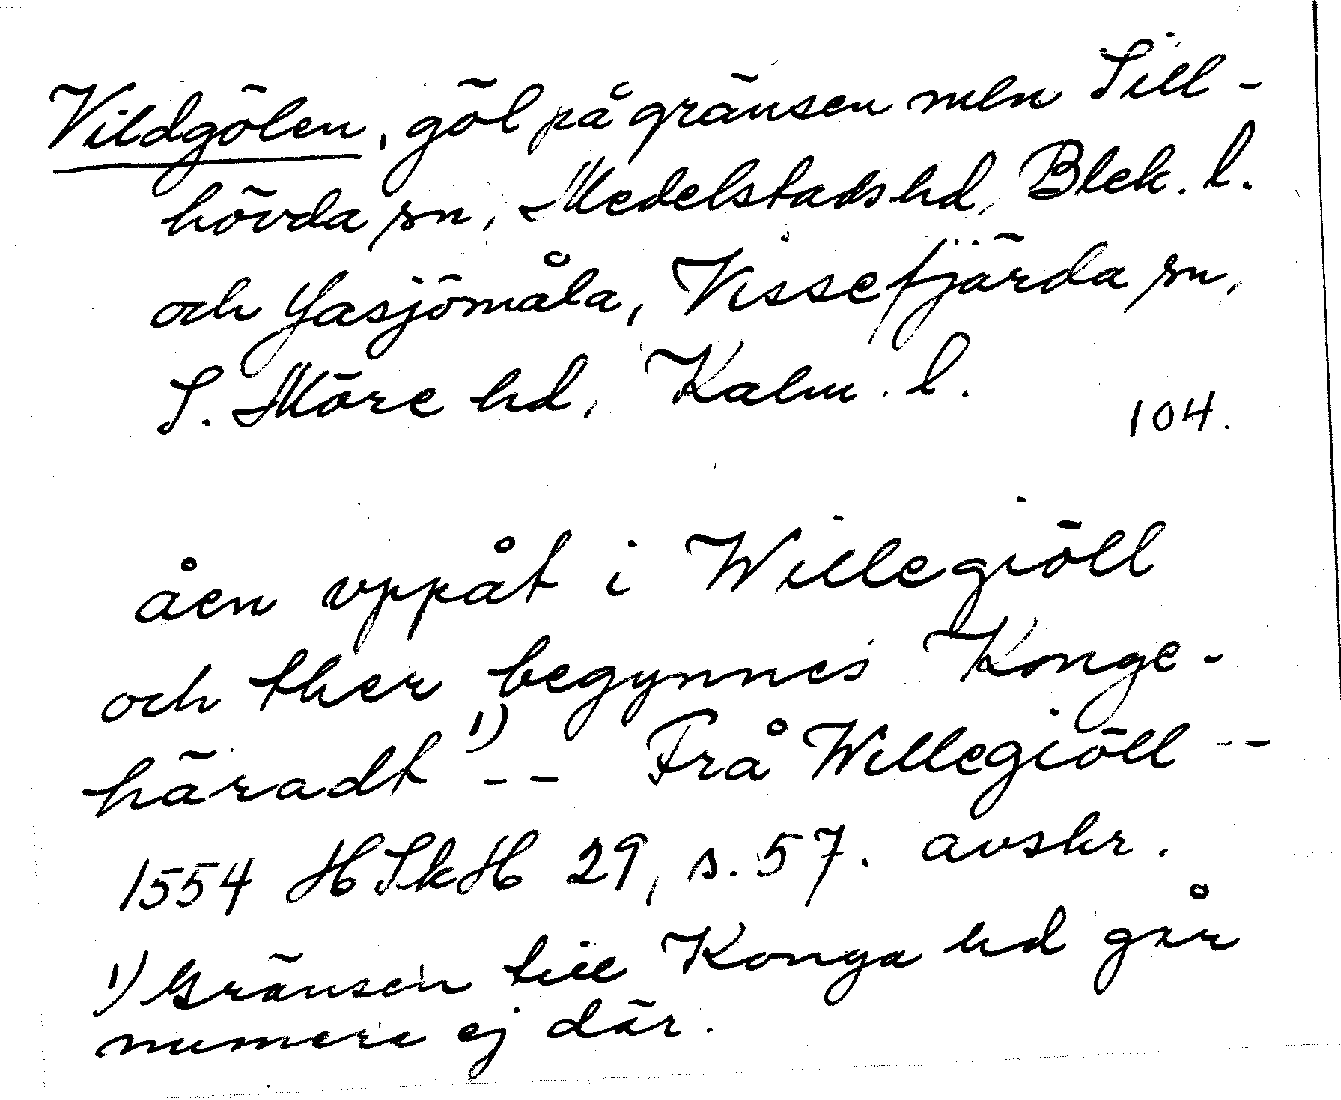 Vildgölen, göl på gränsen mln Till-
hövda sn, Medelstads hd, Blek. l.
och Gasjömåla, Vissefjärda sn,
S. Möre hd, Kalm. l.
104.
åen vppåt i Willegiöll
och ther begynnes Konge-
häradt 1) -- Frå Willegiöll --
1554 HSkH 29, s. 57. avskr.
1) Gränsen till Konga hd går
numera ej där.